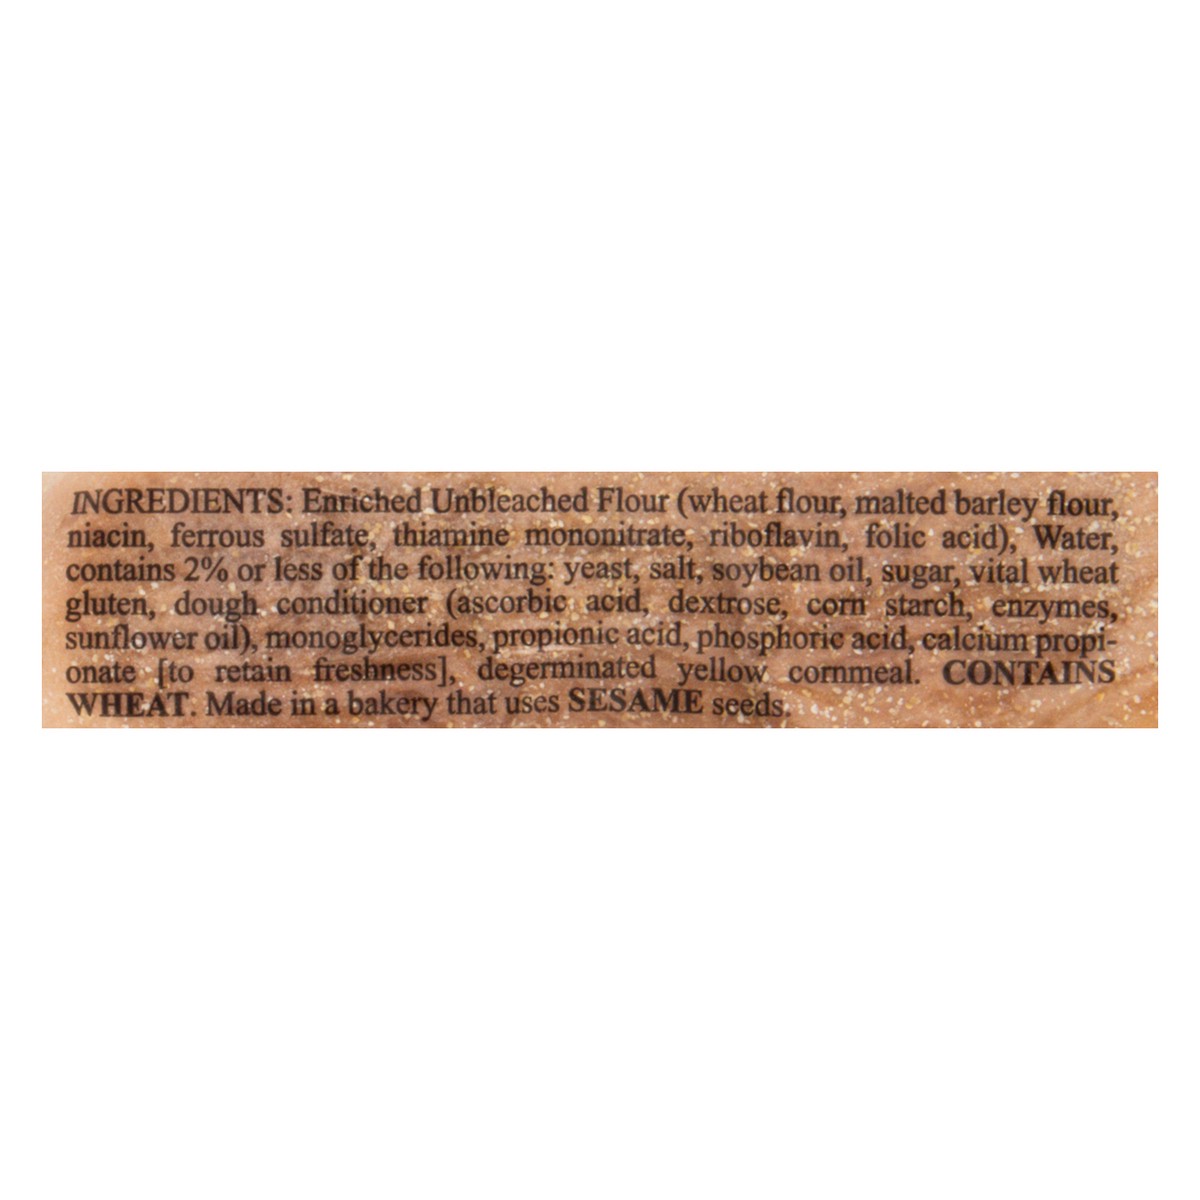 INGREDIENTS: Enriched Unbleached Flour (wheat flour, malted barley flour,
niacin, ferrous sulfate, thiamine mononitrate, riboflavin, folic acid), Water,
contains 2% or less of the following: yeast, salt, soybean oil, sugar, vital wheat
gluten, dough conditioner (ascorbic acid, dextrose, corn starch, enzymes,
sunflower oil), monoglycerides, propionic acid, phosphoric acid, calcium propi-
onate [to retain freshness], degerminated yellow cornmeal. CONTAINS
WHEAT. Made in a bakery that uses SESAME seeds.